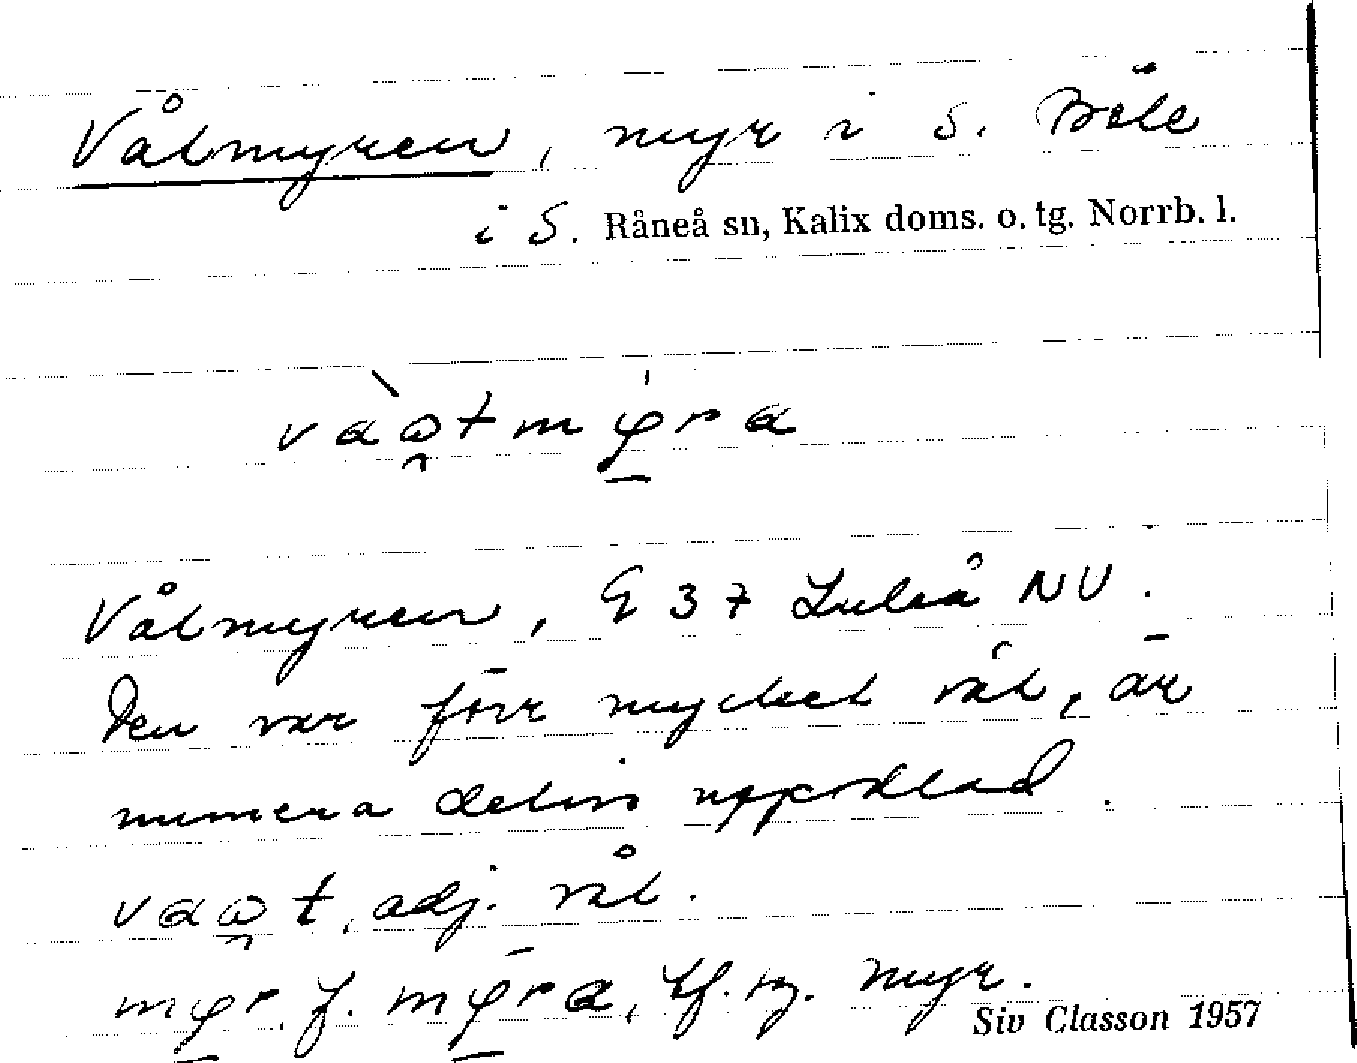 Våtmyren, myr i S. Böle
i S. Råneå sn, Kalix doms. o. tg. Norrb. l.
Våtmyren, E 37 Luleå NV.
Den var förr mycket våt, är
numera delvis uppodlad.
adj. våt.
f. tf. sg. myr.
Siv Classon 1957